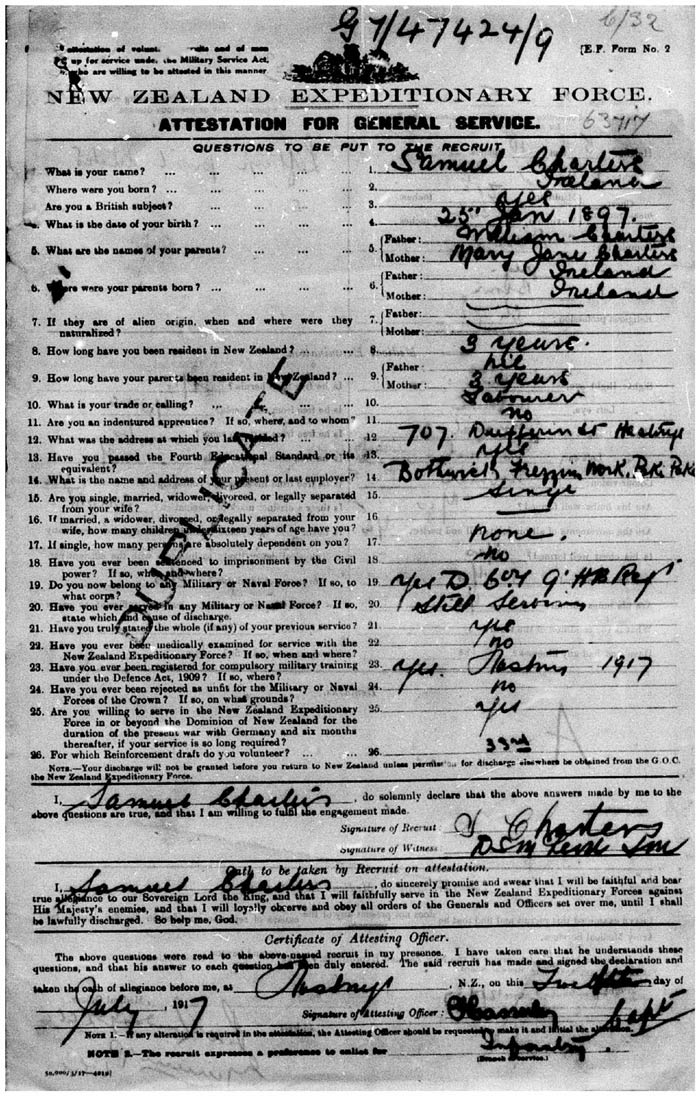 G 7/47424/9
6/32
attestation of volunt and of men
up for service under the Military Service Act,
who are willing to be attested in this manner
[E.F. Form No. 2
NEW ZEALAND EXPEDITIONARY FORCE.
ATTESTATION FOR GENERAL SERVICE.
63717
QUESTIONS TO BE PUT TO THE RECRUIT.
What is your name? ... 1. Samuel Charters
Where were you born? ... 2. Ireland
Are you a British subject? ... 3. Yes
4. What is the date of your birth? ... 4. 25 Jan 1897.
5. What are the names of your parents? ... 5. Father: William Charters
Mother: Mary Jane Charters
6. Where were your parents born? ... 6. Father: Ireland
Mother: Ireland
7. If they are of alien origin, when and where were they naturalized? 7. Father:
Mother:
8. How long have you been resident in New Zealand? ... 8. 3 years.
9. How long have your parents been resident in New Zealand? ... 9. Father: nil
Mother: 3 years
10. What is your trade or calling? ... 10. Labourer
11. Are you an indentured apprentice? If so, where, and to whom? 11. no
12. What was the address at which you last resided? ... 12. 707. Dufferin St Hastings
13. Have you passed the Fourth Educational Standard or its equivalent? 13. yes
14. What is the name and address of your present or last employer? 14. Bothwick Freezing Work, Paki Paki
15. Are you single, married, widower, divorced, or legally separated from your wife? 15. Single
16. If married, a widower, divorced, or legally separated from your wife, how many children under sixteen years of age have you? 16.
17. If single, how many persons are absolutely dependent on you? 17. none.
18. Have you ever been sentenced to imprisonment by the Civil power? If so, when and where? 18. no
19. Do you now belong to any Military or Naval Force? If so, to what corps? 19. yes D. Coy 9 HB Regt
20. Have you ever served in any Military or Naval Force? If so, state which and cause of discharge. 20. Still Serving
21. Have you truly stated the whole (if any) of your previous service? 21. yes
22. Have you ever been medically examined for service with the New Zealand Expeditionary Force? If so, when and where? 22. no
23. Have you ever been registered for compulsory military training under the Defence Act, 1909? If so, where? 23. yes. Hastings 1917
24. Have you ever been rejected as unfit for the Military or Naval Forces of the Crown? If so, on what grounds? 24. no
25. Are you willing to serve in the New Zealand Expeditionary Force in or beyond the Dominion of New Zealand for the duration of the present war with Germany and six months thereafter, if your service is so long required? 25. yes
26. For which Reinforcement draft do you volunteer? ... 26. 33rd
DUPLICATE
NOTE.—Your discharge will not be granted before you return to New Zealand unless permission for discharge elsewhere be obtained from the G.O.C.
the New Zealand Expeditionary Force.
I, Samuel Charters, do solemnly declare that the above answers made by me to the
above questions are true, and that I am willing to fulfil the engagement made.
Signature of Recruit: S Charters
Signature of Witness:
Oath to be taken by Recruit on attestation.
I, Samuel Charters, do sincerely promise and swear that I will be faithful and bear
true allegiance to our Sovereign Lord the King, and that I will faithfully serve in the New Zealand Expeditionary Forces against
His Majesty's enemies, and that I will loyally observe and obey all orders of the Generals and Officers set over me, until I shall
be lawfully discharged. So help me, God.
Certificate of Attesting Officer.
The above questions were read to the above-named recruit in my presence. I have taken care that he understands these
questions, and that his answer to each question has been duly entered. The said recruit has made and signed the declaration and
taken the oath of allegiance before me, at Hastings, N.Z., on this Twelfth day of
July 1917
Signature of Attesting Officer: Capt
NOTE 1.—If any alteration is required in the attestation, the Attesting Officer should be requested to make it and initial the alteration.
NOTE 2.—The recruit expresses a preference to enlist for Infantry.
(Branch of Service).